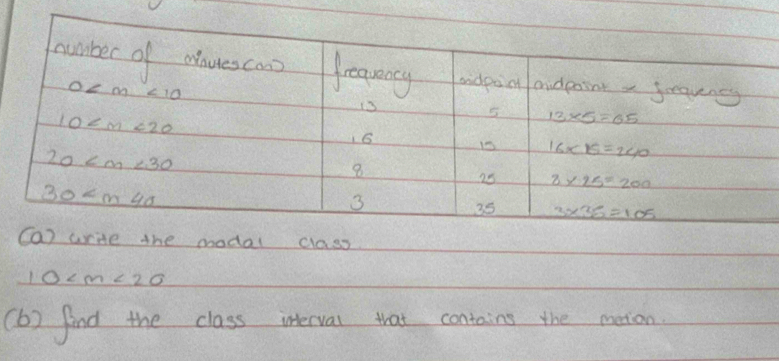 number of minutes (m) frequency midpoint midpoint × frequency
0 < m < 10 13 5 13×5=65
10 < m < 20 16 15 16×15=240
20 < m < 30 8 25 8×25=200
30 < m 40 3 35 3×35=105
(a) write the modal class
10 < m < 20
(b) find the class interval that contains the median.